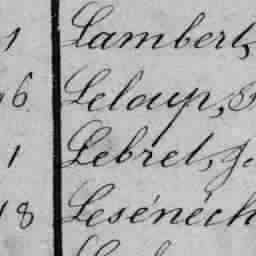 1 Lambert,
6 Leloup, S
1 Lebret, J.
18 Lesénéch